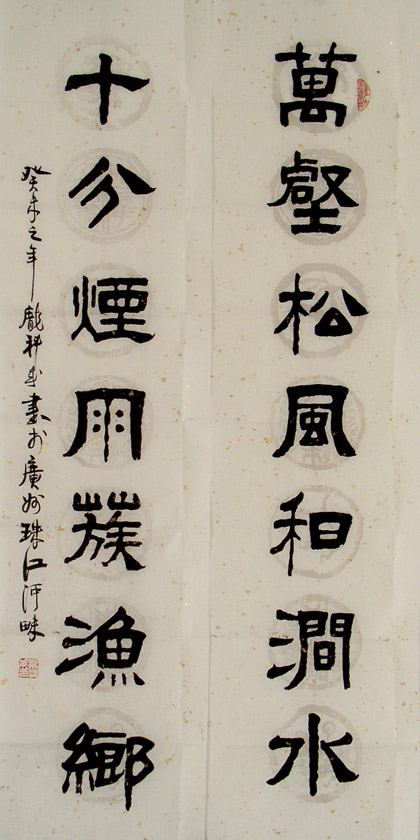 萬壑松風和澗水
十分煙雨蔟漁鄉
癸未之年龍祥成書於廣州珠江河畔